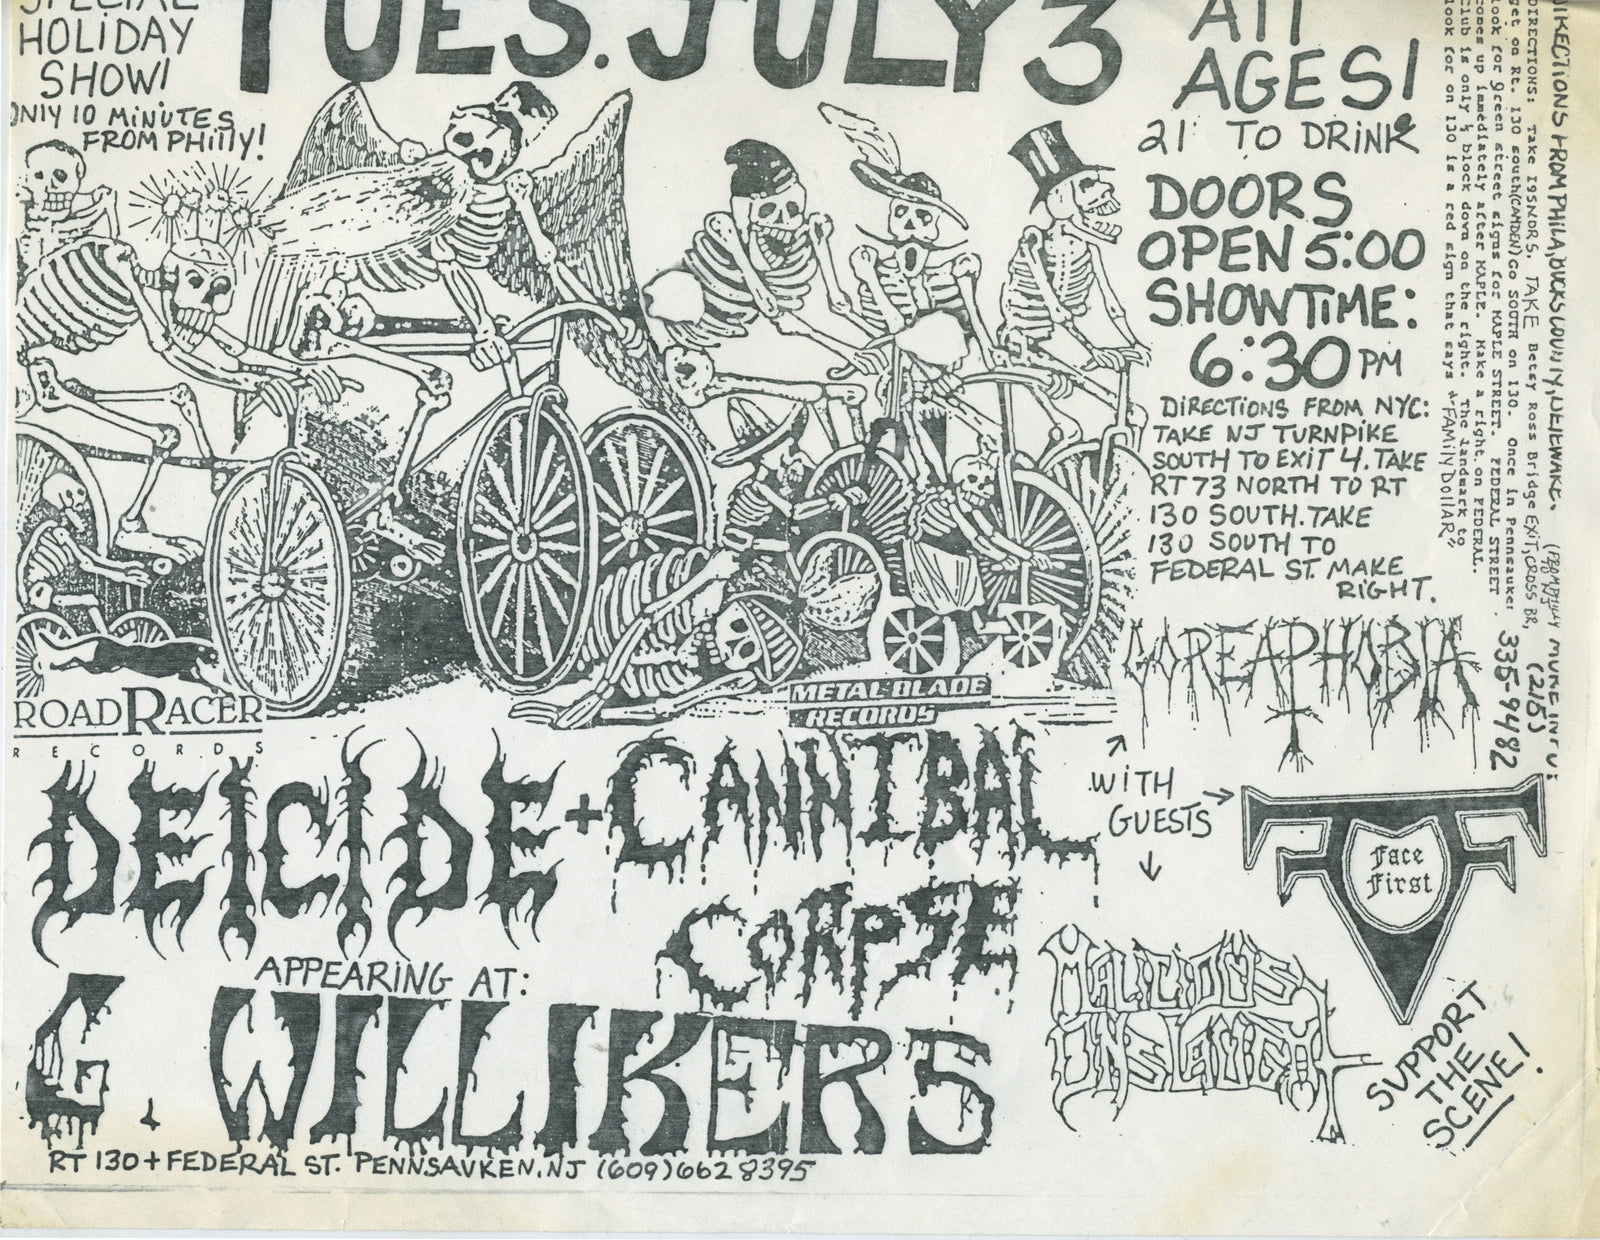 SPECIAL
HOLIDAY
SHOW!
ONLY 10 MINUTES
FROM PHILLY!
TUES. JULY 3
All
AGES!
21 TO DRINK
DOORS
OPEN 5:00
SHOWTIME:
6:30 PM
DIRECTIONS FROM NYC:
TAKE NJ TURNPIKE
SOUTH TO EXIT 4. TAKE
RT 73 NORTH TO RT
130 SOUTH. TAKE
130 SOUTH TO
FEDERAL ST. MAKE
RIGHT.
DIRECTIONS FROM PHILA, BUCKS COUNTY, DELEWARE. (FROM PHILLY TO NJ) MORE INFO:
DIRECTIONS: Take I95N.ORS. TAKE Betsy Ross Bridge EXIT, CROSS BR, (215)
get on Rt. 130 south (CAMDEN) Go SOUTH on 130. Once in Pennsauken 335-9482
look for green street signs for MAPLE STREET. FEDERAL STREET
comes up immediately after MAPLE. Make a right on FEDERAL.
Club is only ½ block down on the right. The landmark to
look for on 130 is a red sign that says "FAMILY DOLLAR"
ROADRACER
RECORDS
METAL BLADE
RECORDS
GOREAPHOBIA
DEICIDE + CANNIBAL
CORPSE
WITH
GUESTS
Face
First
MALICIOUS
ONSLAUGHT
APPEARING AT:
G. WILLIKERS
SUPPORT
THE
SCENE!
RT 130 + FEDERAL ST. PENNSAUKEN, NJ (609) 662 8395